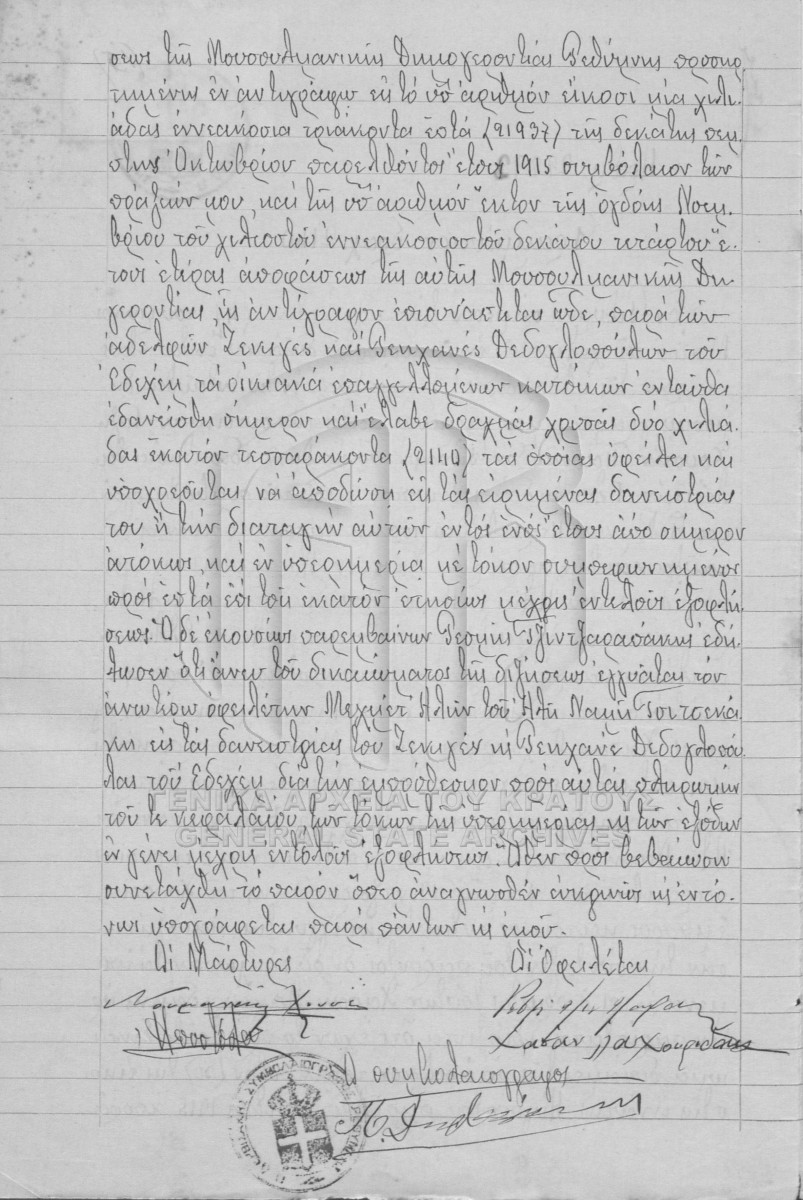 σεως τῆς Μουσουλμανικῆς Δημογεροντίας Ρεθύμνης προσηρ
τημένης ἐν ἀντιγράφῳ εἰς τὸ ὑπ' ἀριθμόν εἴκοσι μία χιλι
άδας ἐννεακόσια τριάκοντα ἑπτά (21937) τῆς δεκάτης πέμ
πτης Ὀκτωβρίου παρελθόντος ἔτους 1915 συμβόλαιον τῶν
πράξεών μου, καὶ τῆς ὑπ' ἀριθμόν ἕκτον τῆς ὀγδόης Νοεμ
βρίου τοῦ χιλιοστοῦ ἐννεακοσιοστοῦ δεκάτου τετάρτου ἔ
τους ἑτέρας ἀποφάσεως τῆς αὐτῆς Μουσουλμανικῆς Δη
γεροντίας, ἧς ἀντίγραφον ἐπισυνάπτεται ὧδε, παρά τῶν
ἀδελφῶν Ζενιγές καὶ Βεηχανές Δεδογλοπούλων τοῦ
Ἐδεχέμ τὰ οἰκιακά ἐπαγγελλομένων κατοίκων ἐνταῦθα
ἐδανείσθη σήμερον καὶ ἔλαβε δραχμάς χρυσάς δύο χιλιά
δας ἑκατόν τεσσαράκοντα (2140) τὰς ὁποίας ὀφείλει καὶ
ὑποχρεοῦται νά ἀποδώσῃ εἰς τὰς εἰρημένας δανειστρίας
του ἢ τὴν διαταγήν αὐτῶν ἐντός ἑνός ἔτους ἀπό σήμερον
ἀτόκως, καὶ ἐν ὑπερημερίᾳ μέ τόκον συμπεφωνημένον
πρός ἑπτά ἐπί τοῖς ἑκατόν ἐτησίως μέχρις ἐντελοῦς ἐξοφλή
σεως. Ὁ δέ ἐκουσίως παρεμβαίνων Ρεσμῆ Τζιντζαρασάκης ἐδή
λωσεν ὅτι ἄνευ τοῦ δικαιώματος τῆς διζήσεως ἐγγυᾶται τόν
ἀνωτέρω ὀφειλέτην Μεχμέτ Ἀλῆν τοῦ Ἀλῆ Ναμῆ Τσιτσεκά
κη εἰς τὰς δανειστρίας του Ζενιγέν κ̀ Βεηχανέ Δεδογλοπού
λας τοῦ Ἐδεχέμ διά τὴν ἐμπρόθεσμον πρός αὐτάς πληρωμήν
τοῦ τε κεφαλαίου, τῶν τόκων τῆς ὑπερημερίας κ̀ τῶν ἐξόδων
ἐν γένει μέχρις ἐντελοῦς ἐξοφλήσεως. Ὅθεν πρός βεβαίωσιν
συνετάχθη τό παρόν ὅπερ ἀναγνωσθέν εὐκρινῶς κ̀ ἐντό
νως ὑπογράφεται παρά πάντων κ̀ ἐμοῦ.
Οἱ Μάρτυρες Οἱ Ὀφειλέται
Ὁ συμβολαιογράφος
ΓΕΝΙΚΑ ΑΡΧΕΙΑ ΤΟΥ ΚΡΑΤΟΥΣ
GENERAL STATE ARCHIVES